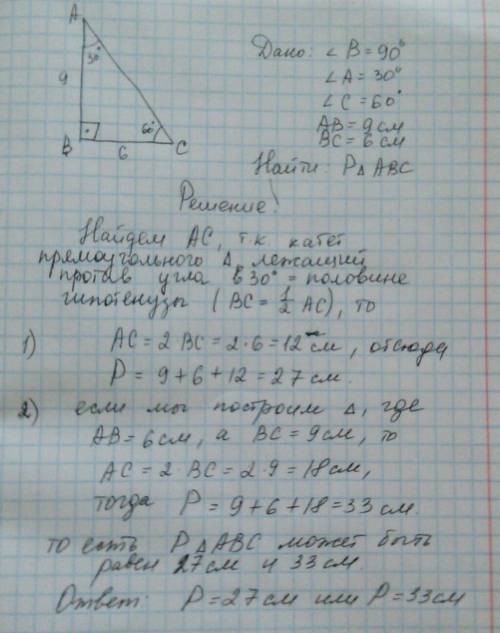 A
30°
9
B
6
60°
C
Дано: ∠B = 90°
∠A = 30°
∠C = 60°
AB = 9 см
BC = 6 см
Найти: P△ABC
Решение:
Найдем AC, т.к. катет
прямоугольного △, лежащий
против угла в 30° = половине
гипотенузы (BC = 1/2 AC), то
1) AC = 2·BC = 2·6 = 12 см, отсюда
P = 9 + 6 + 12 = 27 см.
2) если мы построим △, где
AB = 6 см, а BC = 9 см, то
AC = 2·BC = 2·9 = 18 см,
тогда P = 9 + 6 + 18 = 33 см.
то есть P△ABC может быть
равен 27 см и 33 см
Ответ: P = 27 см или P = 33 см